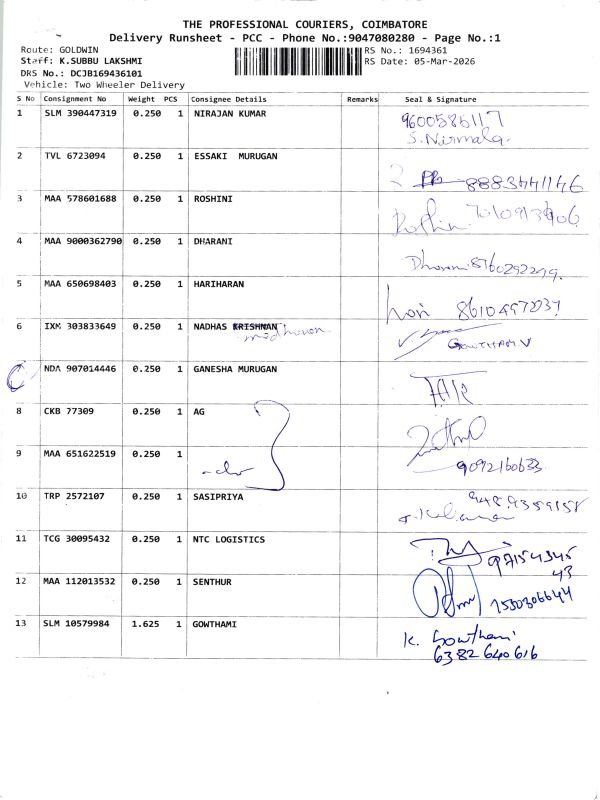 THE PROFESSIONAL COURIERS, COIMBATORE
Delivery Runsheet - PCC - Phone No.:9047080280 - Page No.:1
Route: GOLDWIN RS No.: 1694361
Staff: K.SUBBU LAKSHMI RS Date: 05-Mar-2026
DRS No.: DCJB169436101
Vehicle: Two Wheeler Delivery
S No Consignment No Weight PCS Consignee Details Remarks Seal & Signature
1 SLM 390447319 0.250 1 NIRAJAN KUMAR 9600585117
S. Nirmala.
2 TVL 6723094 0.250 1 ESSAKI MURUGAN
8883441146
3 MAA 578601688 0.250 1 ROSHINI Roshin
4 MAA 9000362790 0.250 1 DHARANI
Dharani 8760292279.
5 MAA 650698403 0.250 1 HARIHARAN
hari 8610497237
6 IXM 303833649 0.250 1 NADHAS KRISHNAN
madhavan GOWTHAM V
NDA 907014446 0.250 1 GANESHA MURUGAN
8 CKB 77309 0.250 1 AG
9 MAA 651622519 0.250 1
9092160633
10 TRP 2572107 0.250 1 SASIPRIYA 9489359158
11 TCG 30095432 0.250 1 NTC LOGISTICS
97154345
43
12 MAA 112013532 0.250 1 SENTHUR
7550306644
13 SLM 10579984 1.625 1 GOWTHAMI K. Gowthami
6382640616